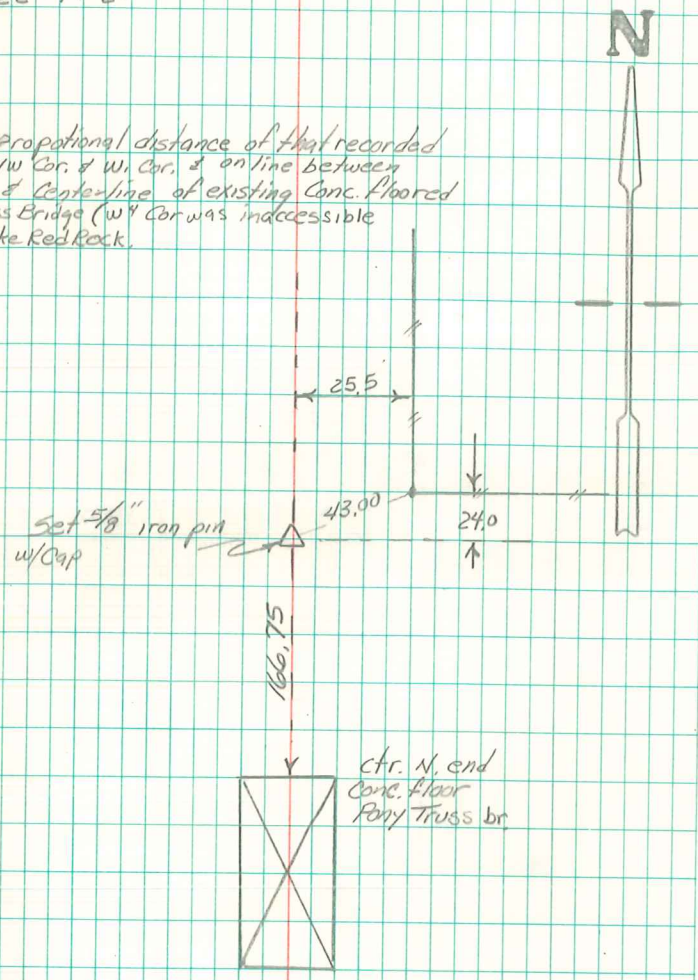 N
propotional distance of that recorded
W Cor. & W. Cor. & on line between
& Centerline of existing Conc. floored
s Bridge (W4 Cor was inaccessible
ke Red Rock.
25.5
43.00
24.0
Set 5/8" iron pin
w/Cap
166.75
ctr. N. end
Conc. floor
Pony Truss br.